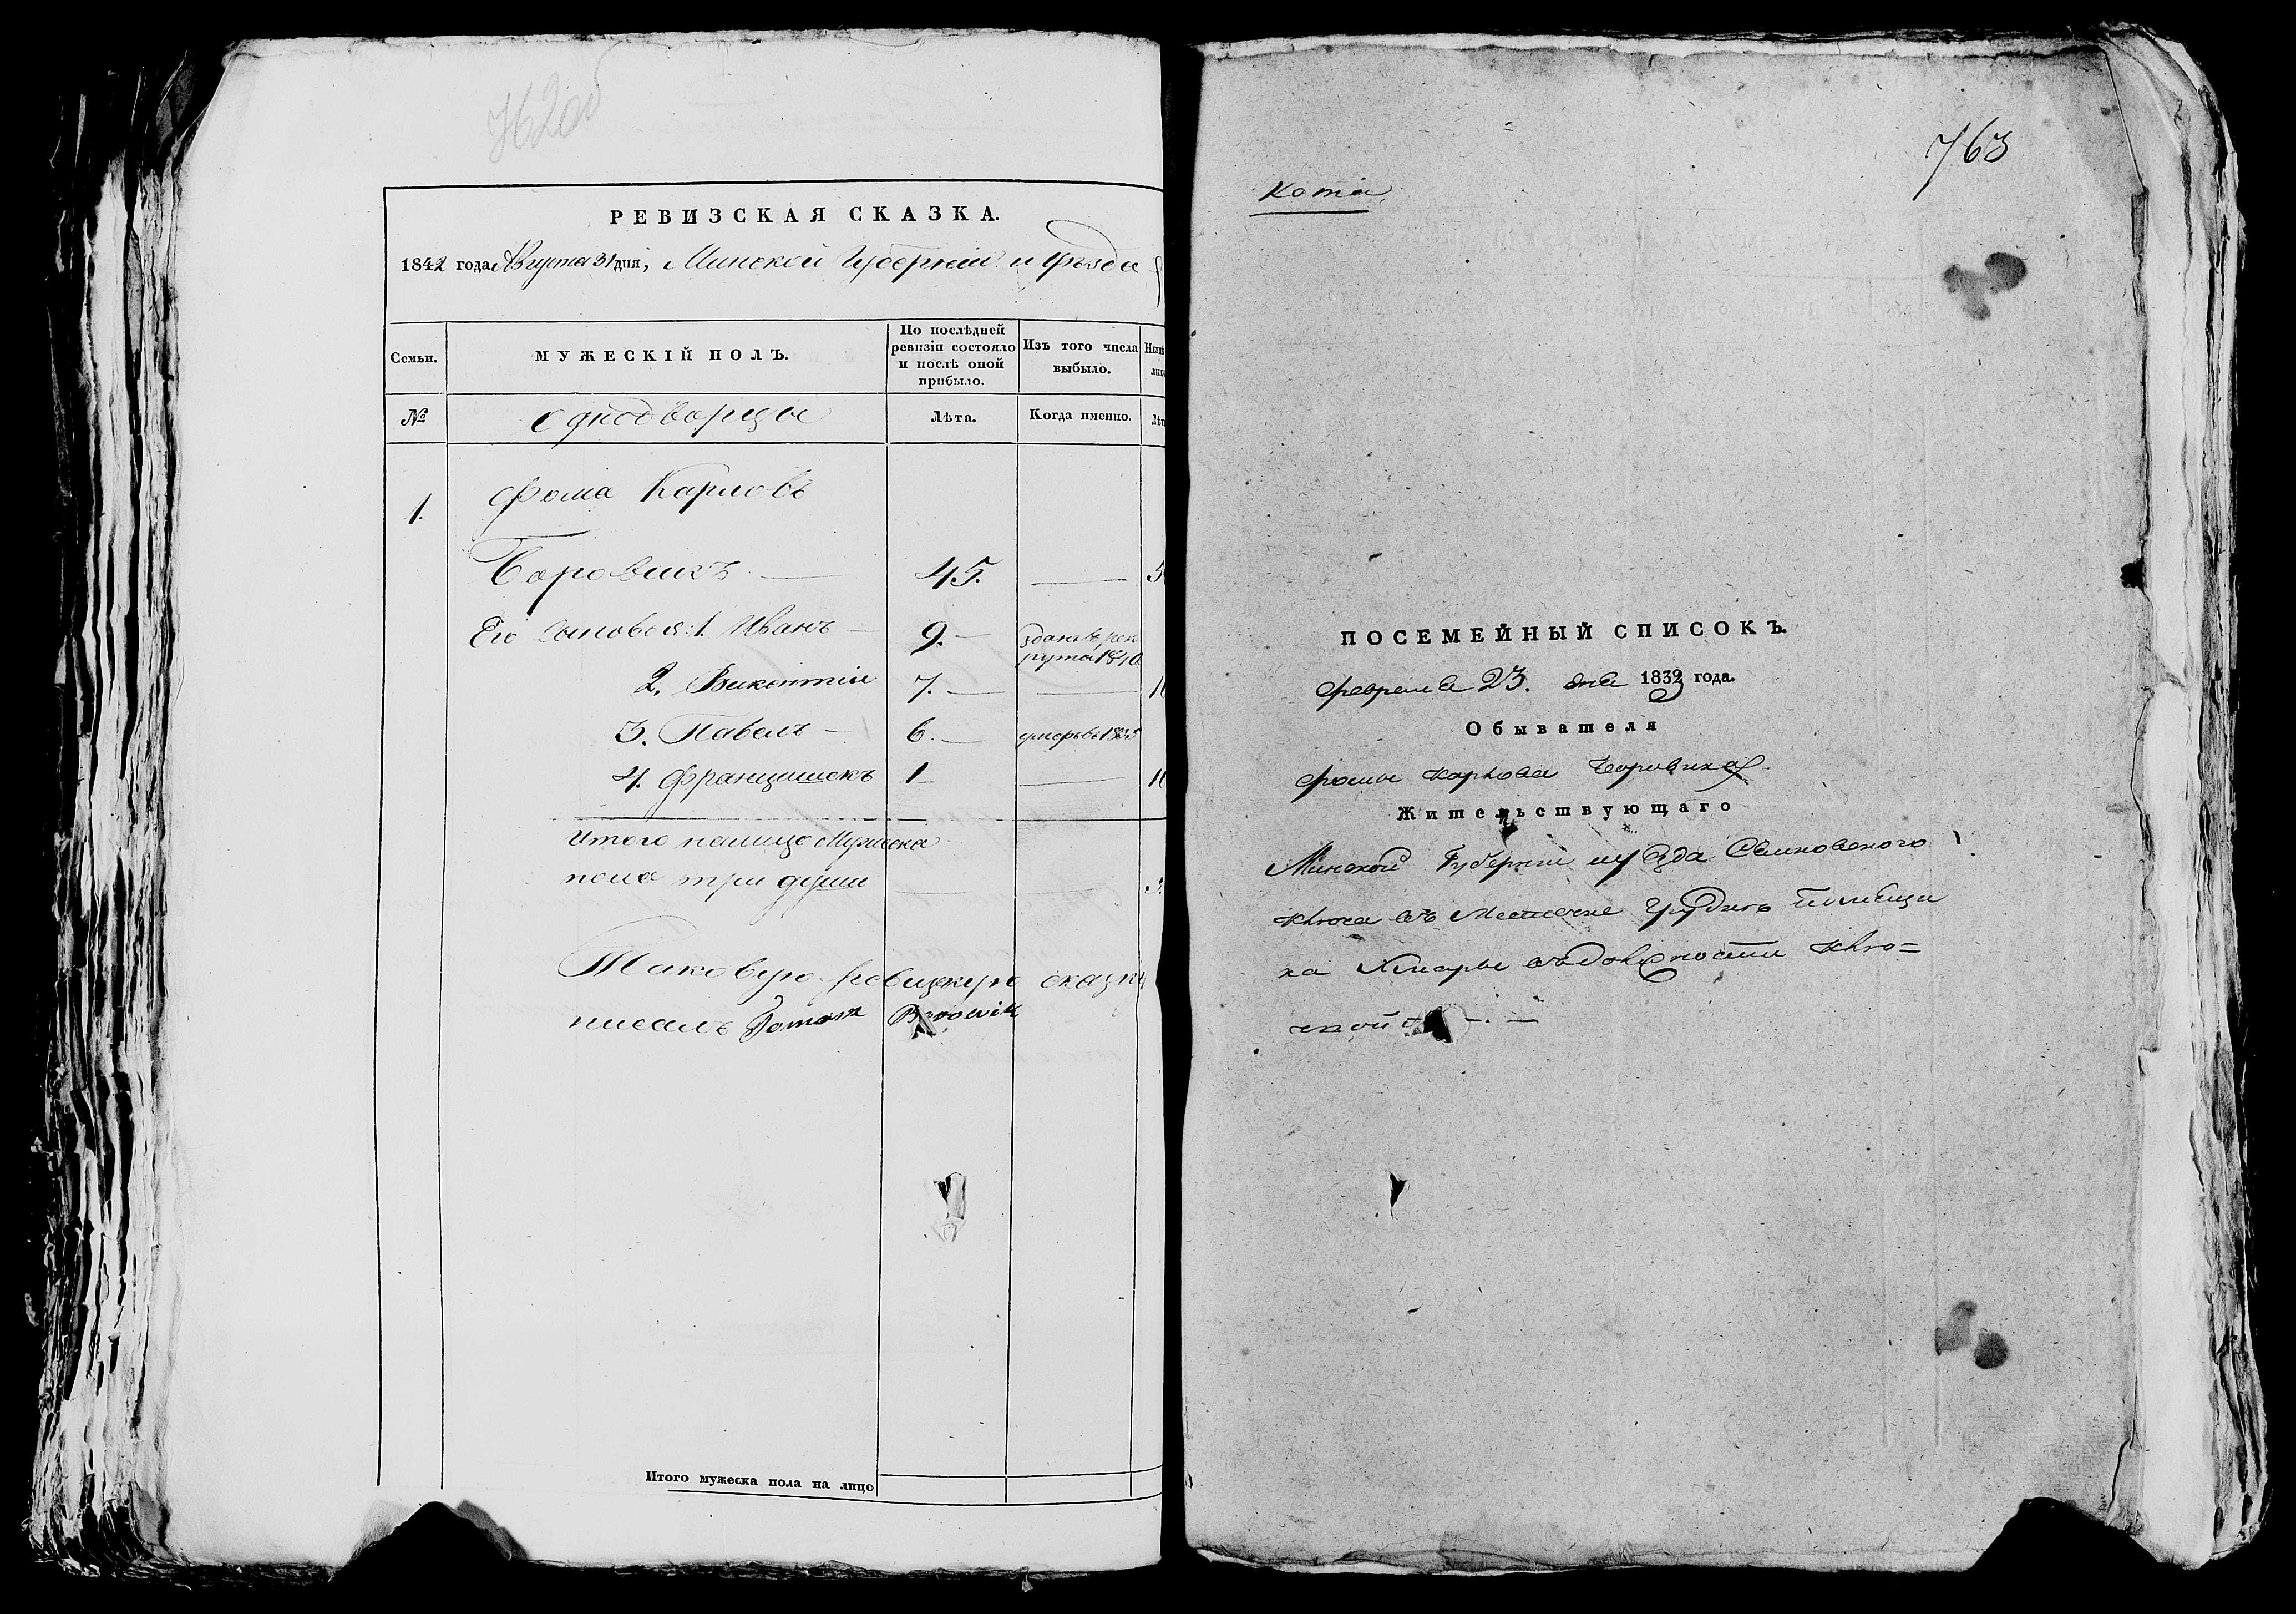 762об
РЕВИЗСКАЯ СКАЗКА.
1842 года Августа 31 дня, Минской Губернии и Уѣзда
Семьи.
МУЖЕСКІЙ ПОЛЪ.
По послѣдней ревизіи состояло и послѣ оной прибыло.
Изъ того числа выбыло.
№
однодворцы
Лѣта.
Когда именно.
1.
Фома Карловъ
Боровикъ — 45. —
Его сыновья: 1. Иванъ — 9. — зданъ въ рек
рута 1840
2. Викентіи 7. —
3. Павелъ — 6. — умеръ въ 1835
4. Францишекъ 1 —
Итого налицо Мужеска
пола три души
Таковую ревизкую сказку
писалъ Tomasz Borowik
Итого мужеска пола на лицо
763
Копія
ПОСЕМЕЙНЫЙ СПИСОКЪ.
Февраля 23. дня 1832 года.
Обывателя
Фомы Карлова Боровика
Жительствующаго
Минской Губернии уѣзда
ключа въ Местечке
ха